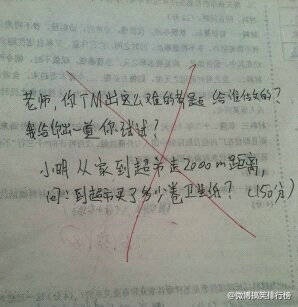 老师，你TM出这么难的考题给谁做的？
我给你出一道你试试？
小明从家到超市走2000m距离，
问：到超市买了多少卷卫生纸？（150分）
@微博搞笑排行榜